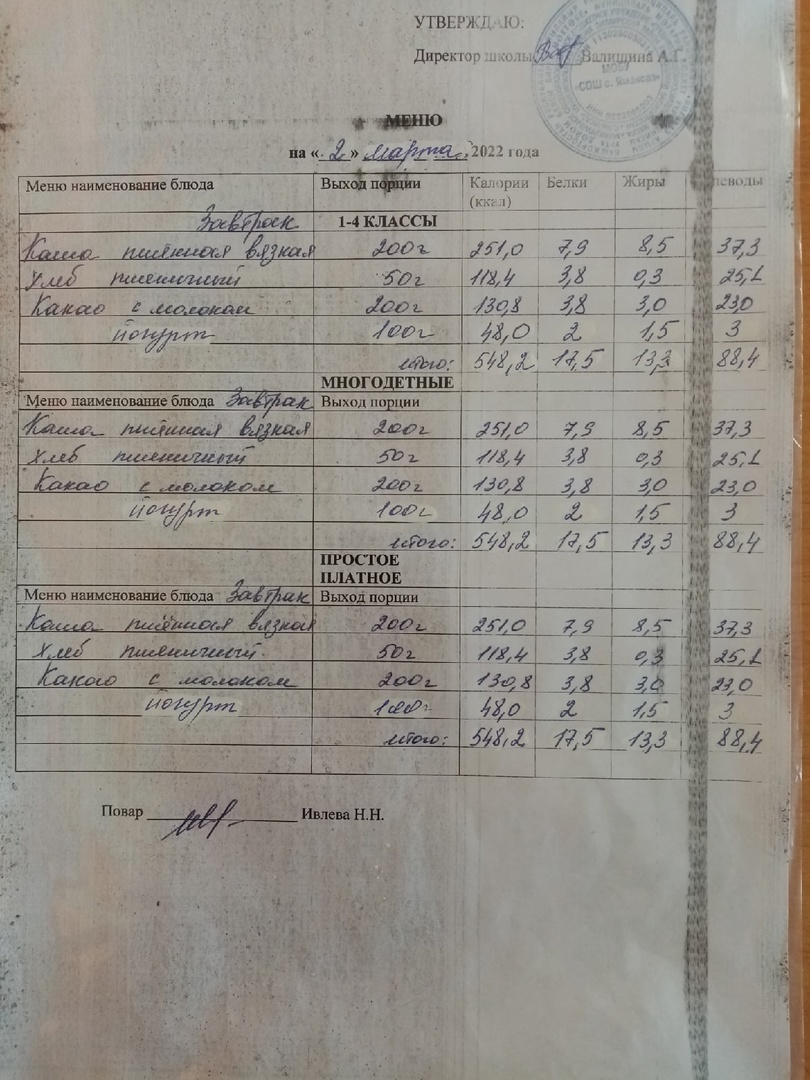 УТВЕРЖДАЮ:
Директор школы Валишина А.Г.
МЕНЮ
на « 2 » марта 2022 года
Меню наименование блюда Выход порции Калории (ккал) Белки Жиры
Завтрак 1-4 КЛАССЫ
Каша пшённая вязкая 200г 251,0 7,9 8,5 37,3
Хлеб пшеничный 50г 118,4 3,8 0,3 25,1
Какао с молоком 200г 130,8 3,8 3,0 23,0
йогурт 100г 48,0 2 1,5 3
итого: 548,2 17,5 13,3 88,4
МНОГОДЕТНЫЕ
Меню наименование блюда Завтрак Выход порции
Каша пшённая вязкая 200г 251,0 7,9 8,5 37,3
Хлеб пшеничный 50г 118,4 3,8 0,3 25,1
Какао с молоком 200г 130,8 3,8 3,0 23,0
йогурт 100г 48,0 2 1,5 3
итого: 548,2 17,5 13,3 88,4
ПРОСТОЕ
ПЛАТНОЕ
Меню наименование блюда Завтрак Выход порции
Каша пшённая вязкая 200г 251,0 7,9 8,5 37,3
Хлеб пшеничный 50г 118,4 3,8 0,3 25,1
Какао с молоком 200г 130,8 3,8 3,0 23,0
йогурт 100г 48,0 2 1,5 3
итого: 548,2 17,5 13,3 88,4
Повар Ивлева Н.Н.